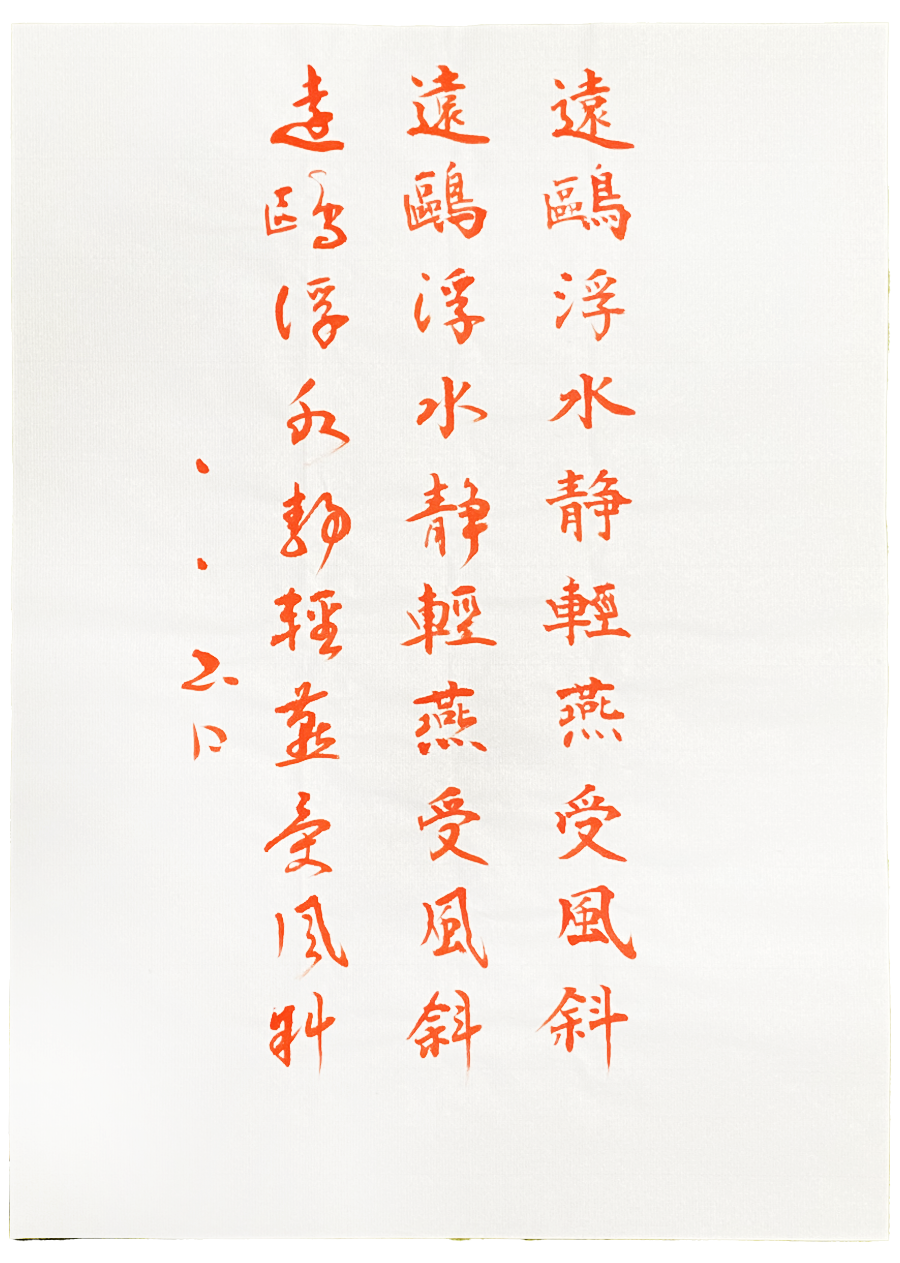 遠鷗浮水静輕燕受風斜
遠鷗浮水静輕燕受風斜
遠鷗浮水静輕燕受風斜